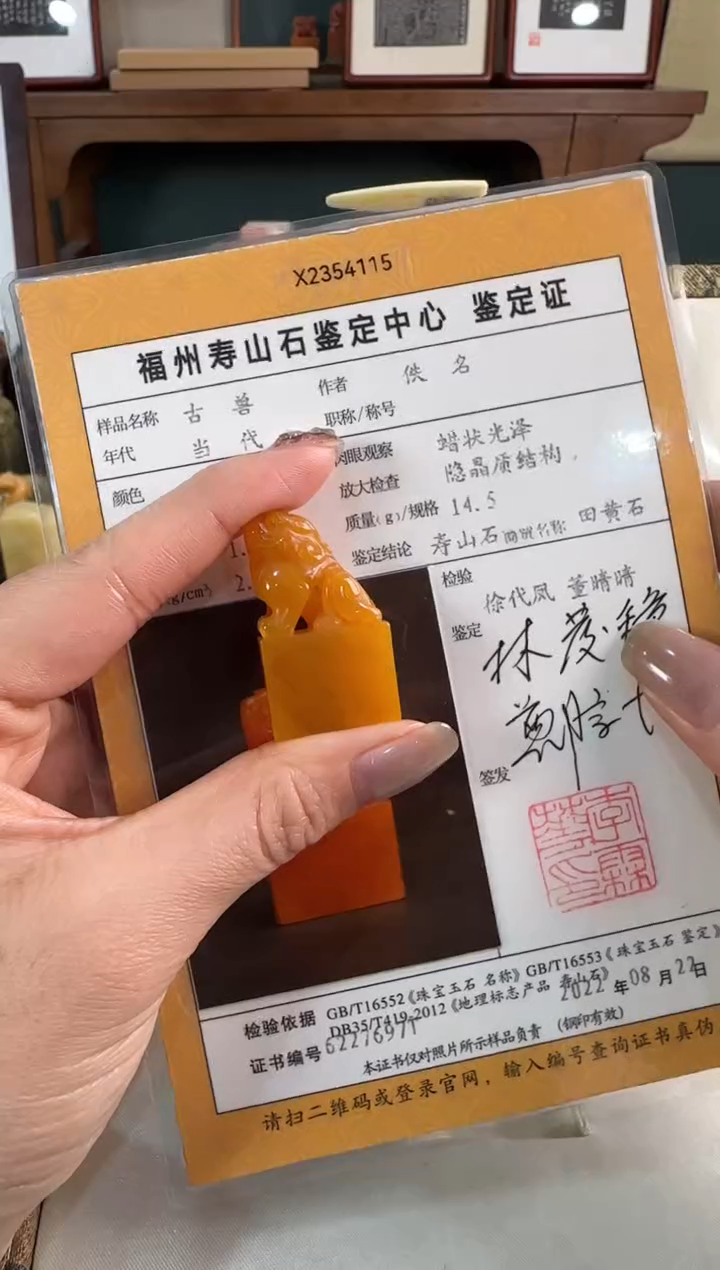 X2354115
福州寿山石鉴定中心 鉴定证
样品名称 古兽 作者 佚名
年代 当代 职称/称号
颜色 肉眼观察 蜡状光泽
放大检查 隐晶质结构
质量(g)/规格 14.5
鉴定结论 寿山石 商贸名称 田黄石
1.
g/cm³ 2.
检验 徐代凤 董晴晴
鉴定
签发
检验依据 GB/T16552《珠宝玉石 名称》GB/T16553《珠宝玉石 鉴定》
DB35/T419-2012《地理标志产品 寿山石》
2022年08月22日
证书编号 62276971
本证书仅对照片所示样品负责 (钢印有效)
请扫二维码或登录官网，输入编号查询证书真伪